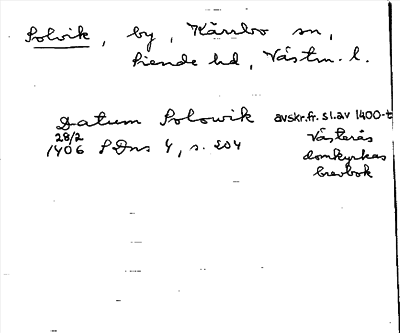 Solvik, by, Kärrbo sn,
Siende hd, Västm. l.
Datum Solowik avskr. fr. sl. av 1400-t
28/2 Västerås
1406 SDns 4, s. 204 domkyrkas
brevbok